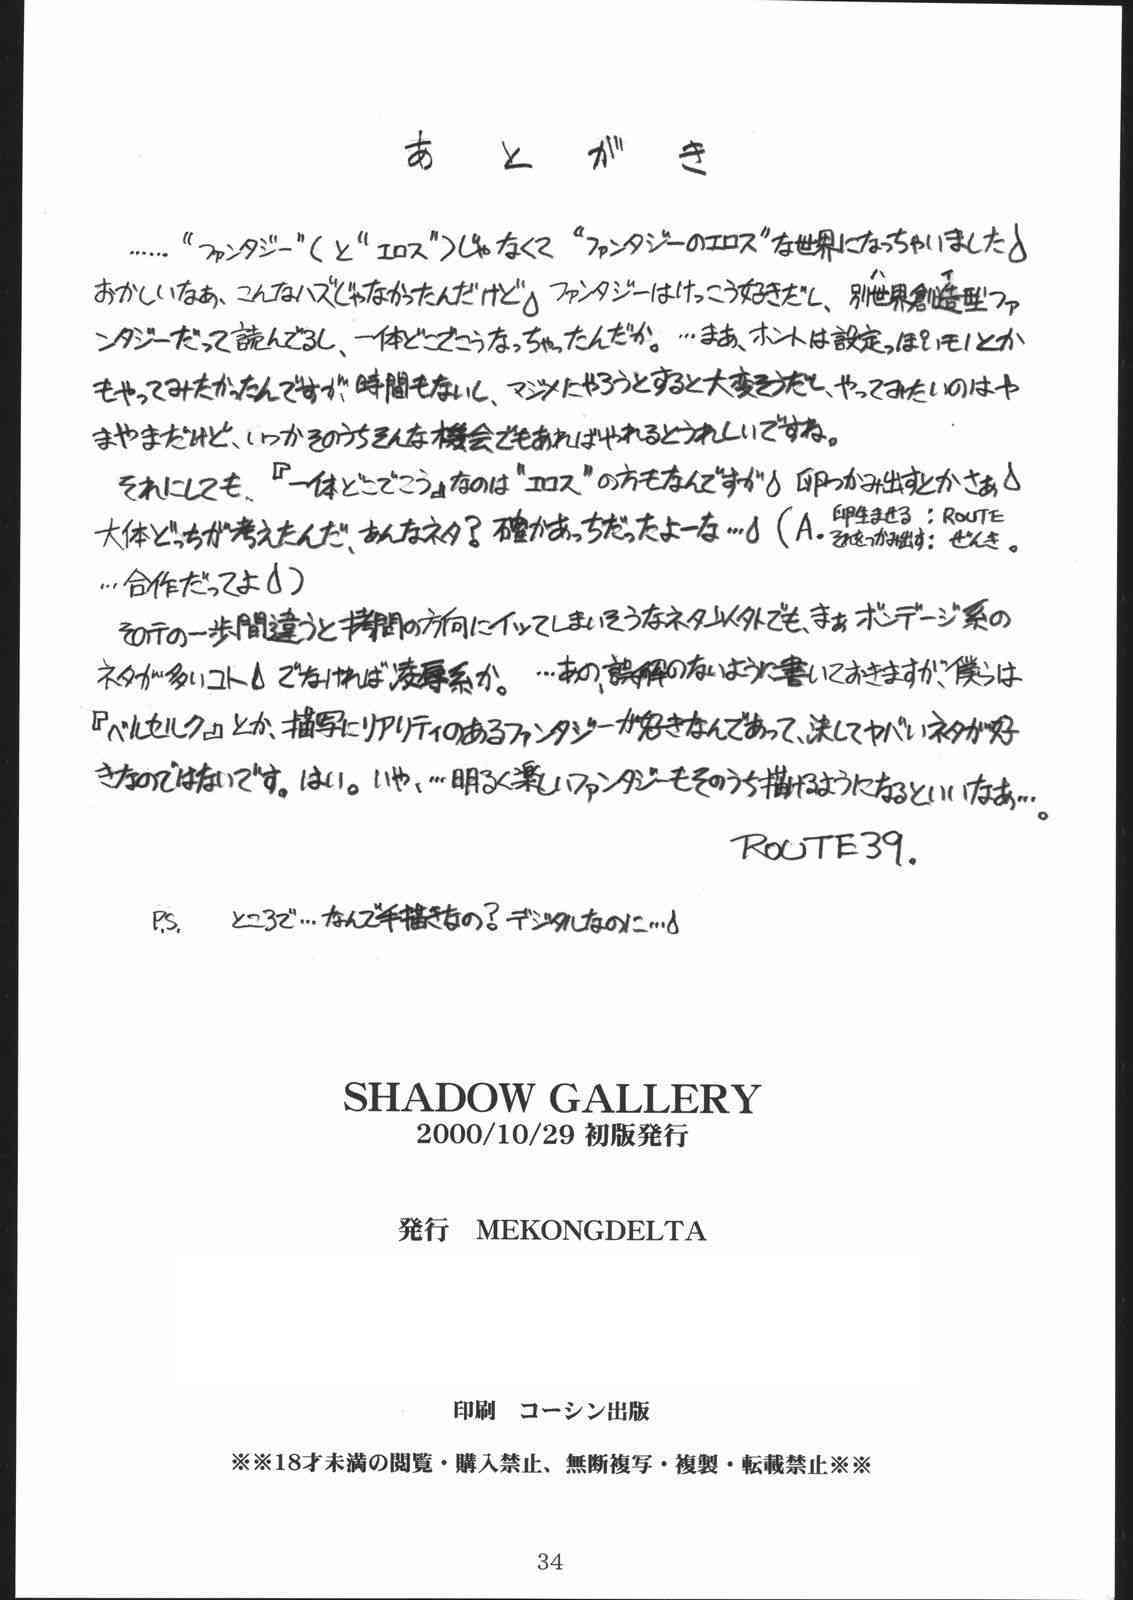 あとがき
……“ファンタジー”(と“エロス”)じゃなくて“ファンタジーのエロス”な世界になっちゃいました♪
おかしいなぁ、こんなハズじゃなかったんだけど♪ファンタジーはけっこう好きだし、別世界創造型ファ
ンタジーだって読んでるし、一体どこでこうなっちゃったんだか。…まあ、ホントは設定っぽいモノとか
もやってみたかったんですが、時間もないし、マジメにやろうとすると大変そうだし、やってみたいのはや
まやまだけど、いつかそのうちそんな機会でもあればやれるとうれしいですね。
それにしても、『一体どこでこう』なのは“エロス”の方もなんですが♪卵つかみ出すとかさぁ♪
大体どっちが考えたんだ、あんなネタ?確かあっちだったよーな…♪(A.卵生ませる:ROUTE
それをつかみ出す:ぜんき。
…合作だってよ♪)
その一歩間違うと拷問の方向にイッてしまいそうなネタ以外でも、まぁボンデージ系の
ネタが多いコト♪でなければ凌辱系か。…あの、誤解のないように書いておきますが、僕らは
『ベルセルク』とか、描写にリアリティのあるファンタジーが好きなんであって、決してヤバいネタが好
きなのではないです。はい。いや、…明るく楽しいファンタジーもそのうち描けるようになるといいなあ…。
ROUTE39.
P.S. ところで…なんで手描きなの?デジタルなのに…♪
SHADOW GALLERY
2000/10/29 初版発行
発行 MEKONGDELTA
印刷 コーシン出版
※※18才未満の閲覧・購入禁止、無断複写・複製・転載禁止※※
34